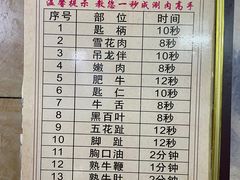 温馨提示 教您一秒成涮肉高手
序号 部位 时间
1 匙柄 10秒
2 雪花肉 8秒
3 吊龙伴 10秒
4 嫩肉 8秒
5 肥牛 12秒
6 匙仁 10秒
7 牛舌 8秒
8 黑百叶 8秒
9 五花趾 12秒
10 脚趾 12秒
11 胸口油 2分钟
12 熟牛鞭 1分钟
13 熟牛肚 1分钟